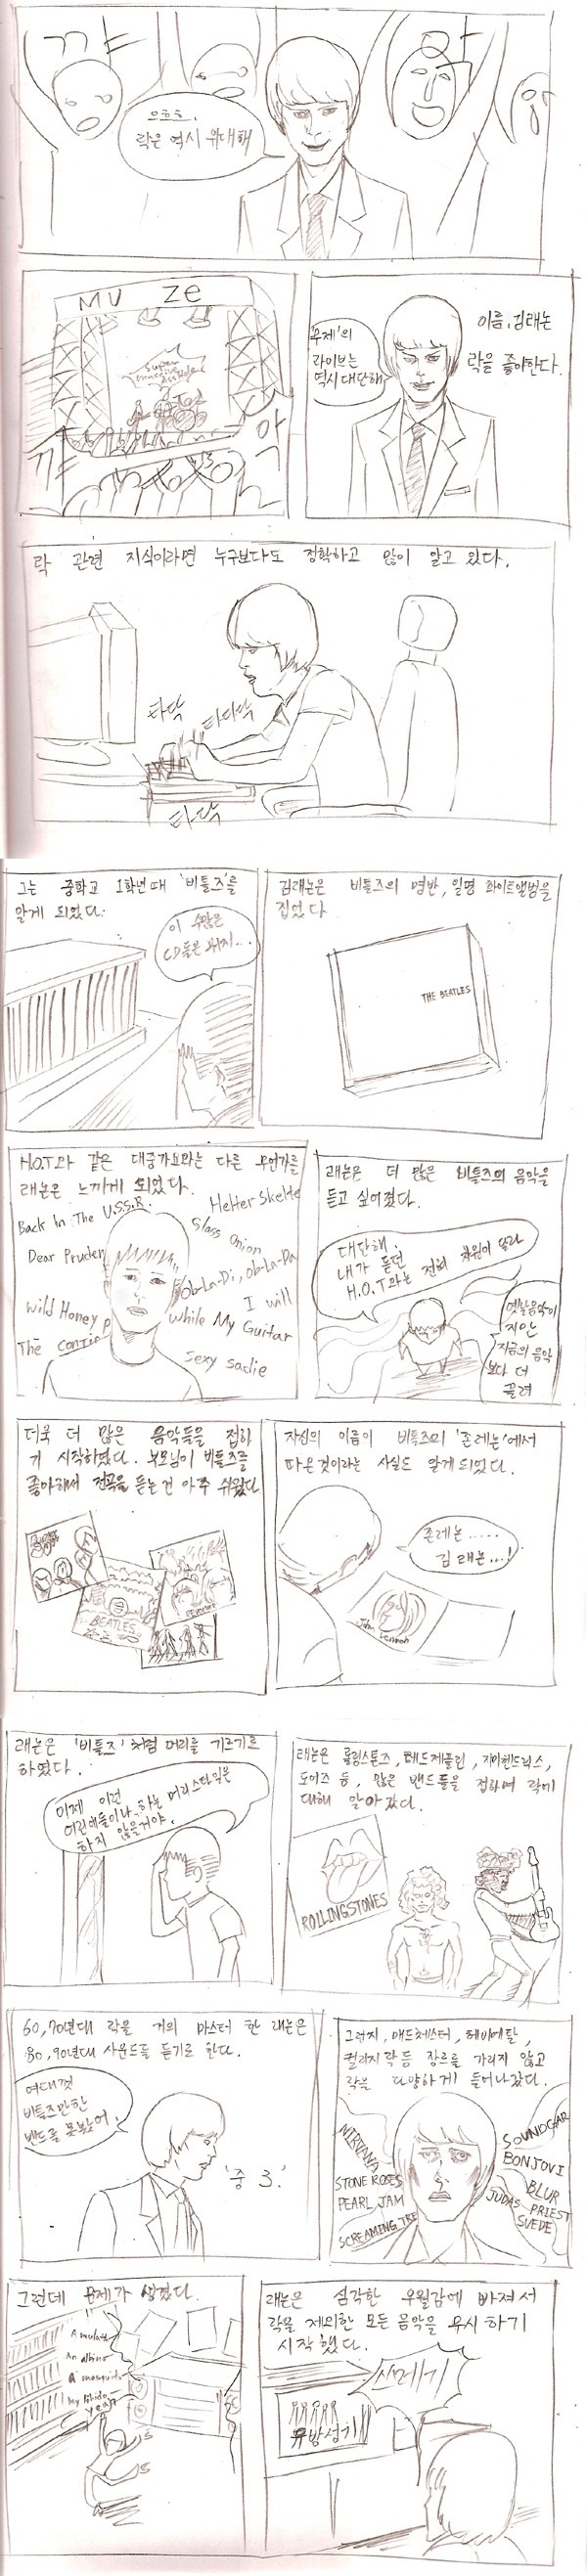 꺄
악
으흐흐,
락은 역시 위대해
MU ZE
super
massive
asshole
꺄
악
'무제'의
라이브는
역시 대단해
이름, 김래논
락을 좋아한다.
락 관련 지식이라면 누구보다도 정확하고 많이 알고 있다.
타닥
타다닥
타닥
그는 중학교 1학년때 '비틀즈'를
알게 되었다.
이 수많은
CD들은 뭐지...
김래논은 비틀즈의 명반, 일명 화이트앨범을
집었다
THE BEATLES
H.O.T와 같은 대중가요와는 다른 무언가를
래논은 느끼게 되었다.
Back In The U.S.S.R.
Helter Skelte
Dear Pruden
Glass Onion
Ob-La-Di, Ob-La-Da
Wild Honey P
I will
While My Guitar
The Contin
Sexy Sadie
래논은 더 많은 비틀즈의 음악을
듣고 싶어졌다.
대단해.
내가 듣던
H.O.T와는 전혀 차원이 달라
옛날음악이
지만
지금의 음악
보다 더
끌려
더욱 더 많은 음악들을 접하
기 시작하였다. 부모님이 비틀즈를
좋아해서 전곡을 듣는건 아주 쉬웠다
BEATLES
자신의 이름이 비틀즈의 '존레논'에서
따온것이라는 사실도 알게되었다.
존레논.....
김래논...!
John Lennon
래논은 '비틀즈'처럼 머리를 기르기로
하였다.
이제 이런
어린애들이나 하는 머리스타일은
하지 않을거야.
래논은 롤링스톤즈, 레드제플린, 지미헨드릭스,
도어즈 등, 많은 밴드들을 접하며 락에
대해 알아갔다.
ROLLINGSTONES
60,70년대 락을 거의 마스터 한 래논은
80,90년대 사운드를 듣기로 한다.
여태껏
비틀즈만한
밴드를 못봤어.
'중 3'
그런지, 매드체스터, 헤비메탈,
컬리지락 등 장르를 가리지 않고
락을 다양하게 들어나갔다.
NIRVANA
STONE ROSES
PEARL JAM
SCREAMING TRE
SOUNDGAR
BONJOVI
BLUR
JUDAS PRIEST
SUEDE
그런데 문제가 생겼다.
A mulatto
An albino
A mosquito
my libido
yeah
래논은 심각한 우월감에 빠져서
락을 제외한 모든 음악을 무시하기
시작했다.
쓰레기
유방성기